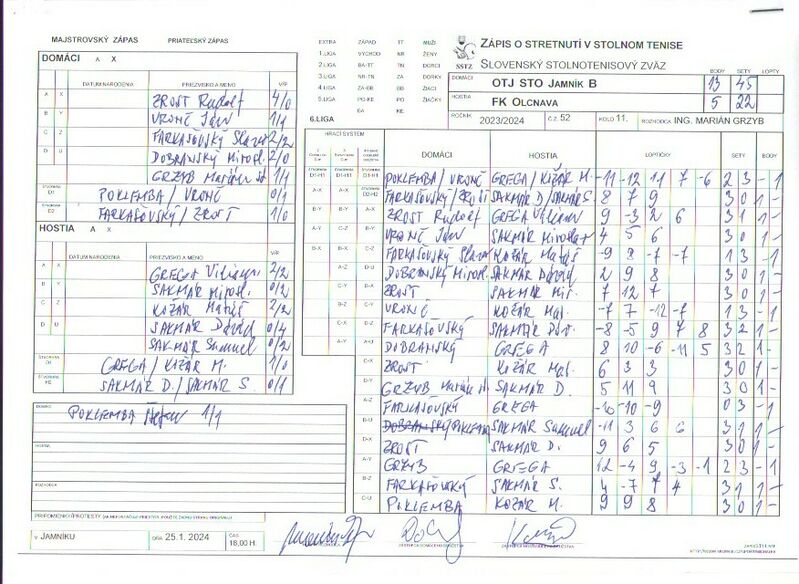 MAJSTROVSKÝ ZÁPAS PRIATEĽSKÝ ZÁPAS
DOMÁCI A X
DÁTUM NARODENIA PRIEZVISKO A MENO V/P
A X ZROST Rudolf 4/0
B Y VRONČ Ján 1/1
C Z FARKAŠOVSKÝ Slavo 2/2
D U DOBRANSKÝ Mirosl. 2/0
GRZYB Marián 1/1
POKLEMBA / VRONČ 0/1
FARKAŠOVSKÝ / ZROST 1/0
HOSTIA A X
DÁTUM NARODENIA PRIEZVISKO A MENO V/P
A X GREGA Viliam 2/2
B Y SAKMÁR Mirosl. 0/2
C Z KOŽÁR Matúš 2/2
D U SAKMÁR Dávid 0/4
SAKMÁR Samuel 0/2
GREGA / KOŽÁR M. 1/0
SAKMÁR D. / SAKMÁR S. 0/1
DOMÁCI
POKLEMBA Štefan 1/1
HOSTIA
ROZHODCA
V JAMNÍKU DŇA 25.1. 2024 ČAS 18,00 H.
EXTRA ZÁPAD TT MUŽI
1.LIGA VÝCHOD NR ŽENY
2.LIGA BA-TT TN DORCI
3.LIGA NR-TN ZA DORKY
4.LIGA ZA-BB BB ŽIACI
5.LIGA PO-KE PO ŽIAČKY
BA KE
6.LIGA
SSTZ
ZÁPIS O STRETNUTÍ V STOLNOM TENISE
SLOVENSKÝ STOLNOTENISOVÝ ZVÄZ
BODY SETY LOPTY
DOMÁCI OTJ STO JAMNÍK B 13 45
HOSTIA FK OLCNAVA 5 22
ROČNÍK 2023/2024 Č.Z. 52 KOLO 11. ROZHODCA ING. MARIÁN GRZYB
HRACÍ SYSTÉM DOMÁCI HOSTIA LOPTIČKY SETY BODY
POKLEMBA / VRONČ GREGA / KOŽÁR M. -11 -12 11 7 -6 2 3 - 1
FARKAŠOVSKÝ / ZROST SAKMÁR D / SAKMÁR S. 8 7 9 3 0 1 -
ZROST Rudolf GREGA Viliam 9 -3 2 6 3 1 1 -
VRONČ Ján SAKMÁR Miroslav 4 5 6 3 0 1 -
FARKAŠOVSKÝ Slavo KOŽÁR Matúš -9 9 -7 -7 1 3 - 1
DOBRANSKÝ Mirosl. SAKMÁR Dávid 2 9 8 3 0 1 -
ZROST SAKMÁR Mir. 7 12 7 3 0 1 -
VRONČ KOŽÁR Mat. -7 7 -12 -7 1 3 - 1
FARKAŠOVSKÝ SAKMÁR Dáv. -8 -5 9 7 8 3 2 1 -
DOBRANSKÝ GREGA 8 10 -6 -11 5 3 2 1
ZROST KOŽÁR Mat. 6 3 3 3 0 1 -
GRZYB Marián SAKMÁR D. 5 11 9 3 0 1 -
FARKAŠOVSKÝ GREGA -10 -10 -9 0 3 - 1
DOBRANSKÝ POKLEMBA SAKMÁR Samuel -11 3 6 6 3 1 1 -
ZROST SAKMÁR D. 9 6 5 3 0 1 -
GRZYB GREGA 12 -4 9 -3 -1 2 3 - 1
FARKAŠOVSKÝ SAKMÁR S. 4 -7 7 4 3 1 1 -
POKLEMBA KOŽÁR M. 9 9 8 3 0 1 -